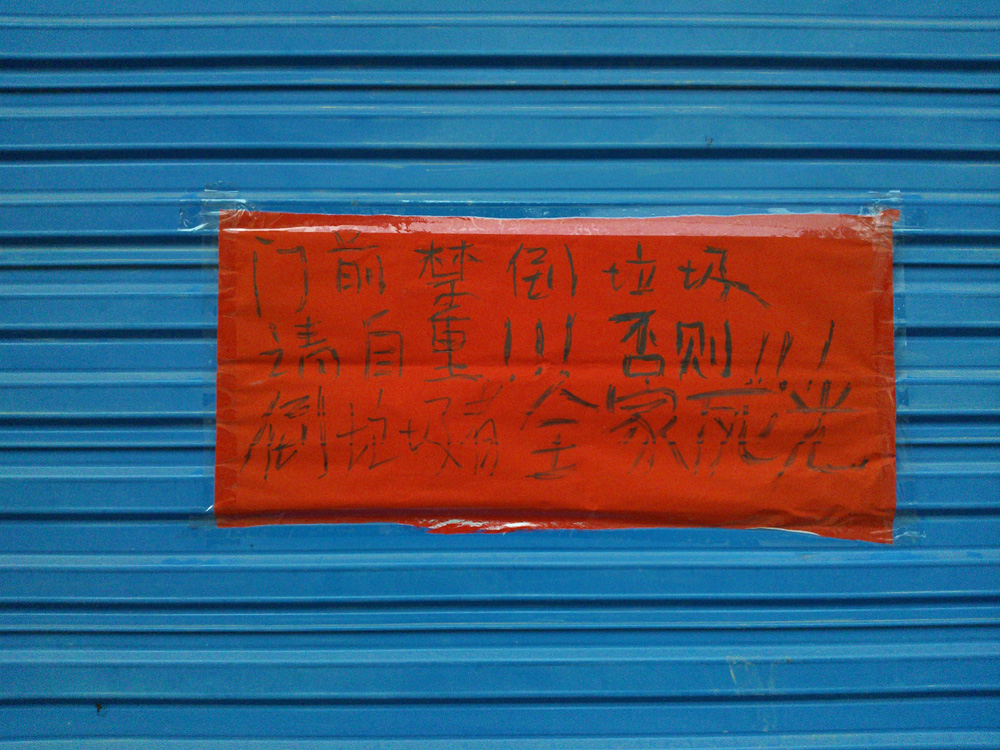 门前禁倒垃圾
请自重!!! 否则!!!
倒垃圾者全家死光